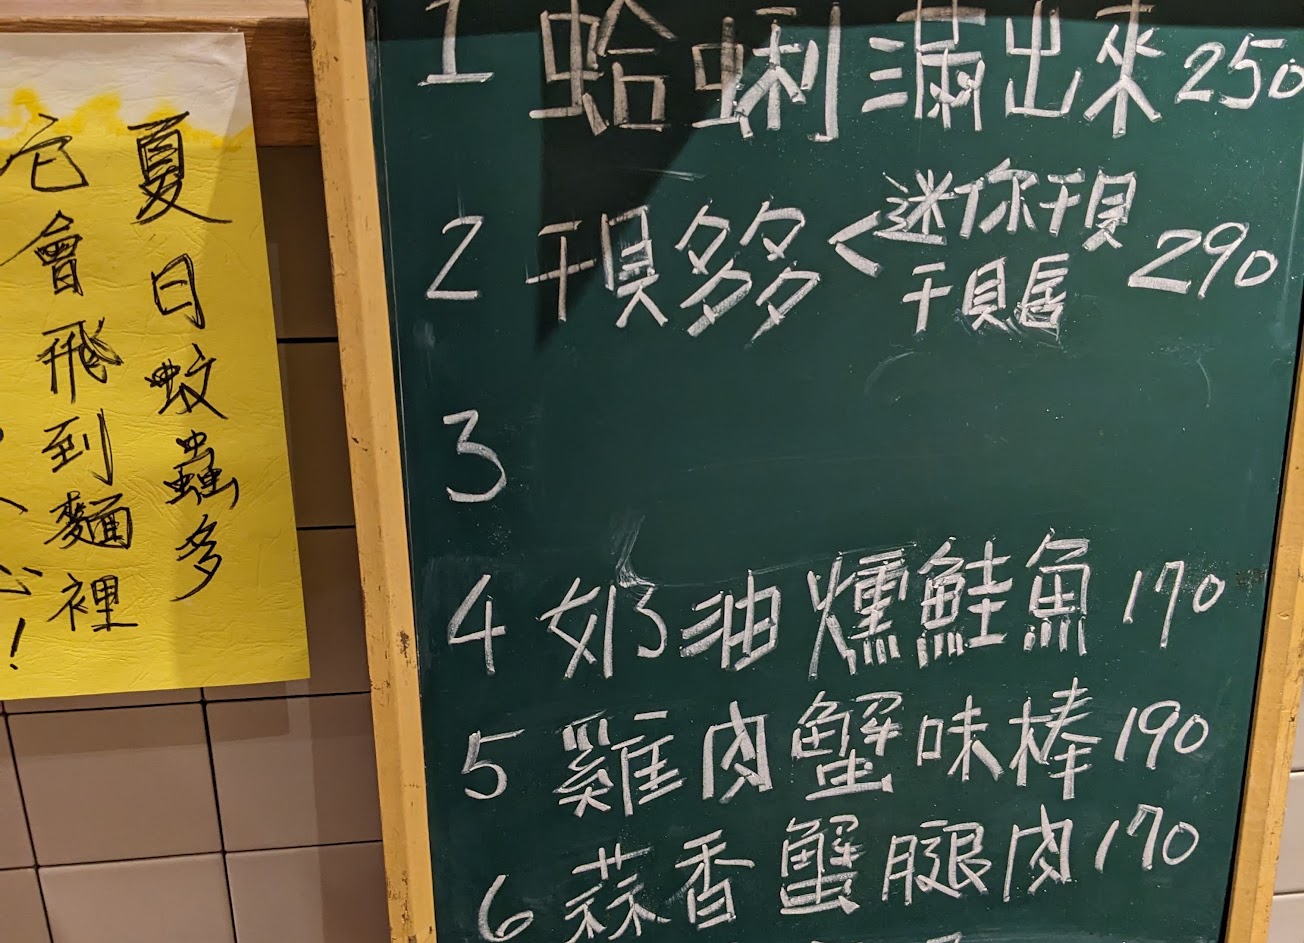 1 蛤蜊滿出來 250
2 干貝多多<迷你干貝 290
干貝唇
3
4 奶油燻鮭魚 170
5 雞肉蟹味棒 190
6 蒜香蟹腿肉 170
夏日蚊蟲多
它會飛到麵裡
心!